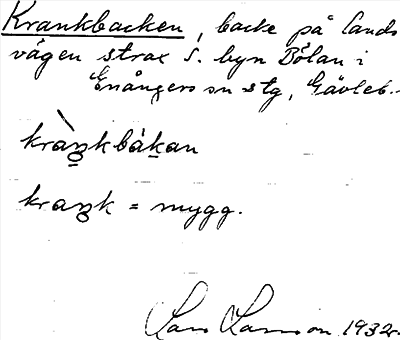 Krankbacken, backe på lands
vägen strax S. byn Bölan i
Enångers sn stg, Gävleb.
kràŋkbákan
kraŋk = mygg.
Lars Larsson 1932